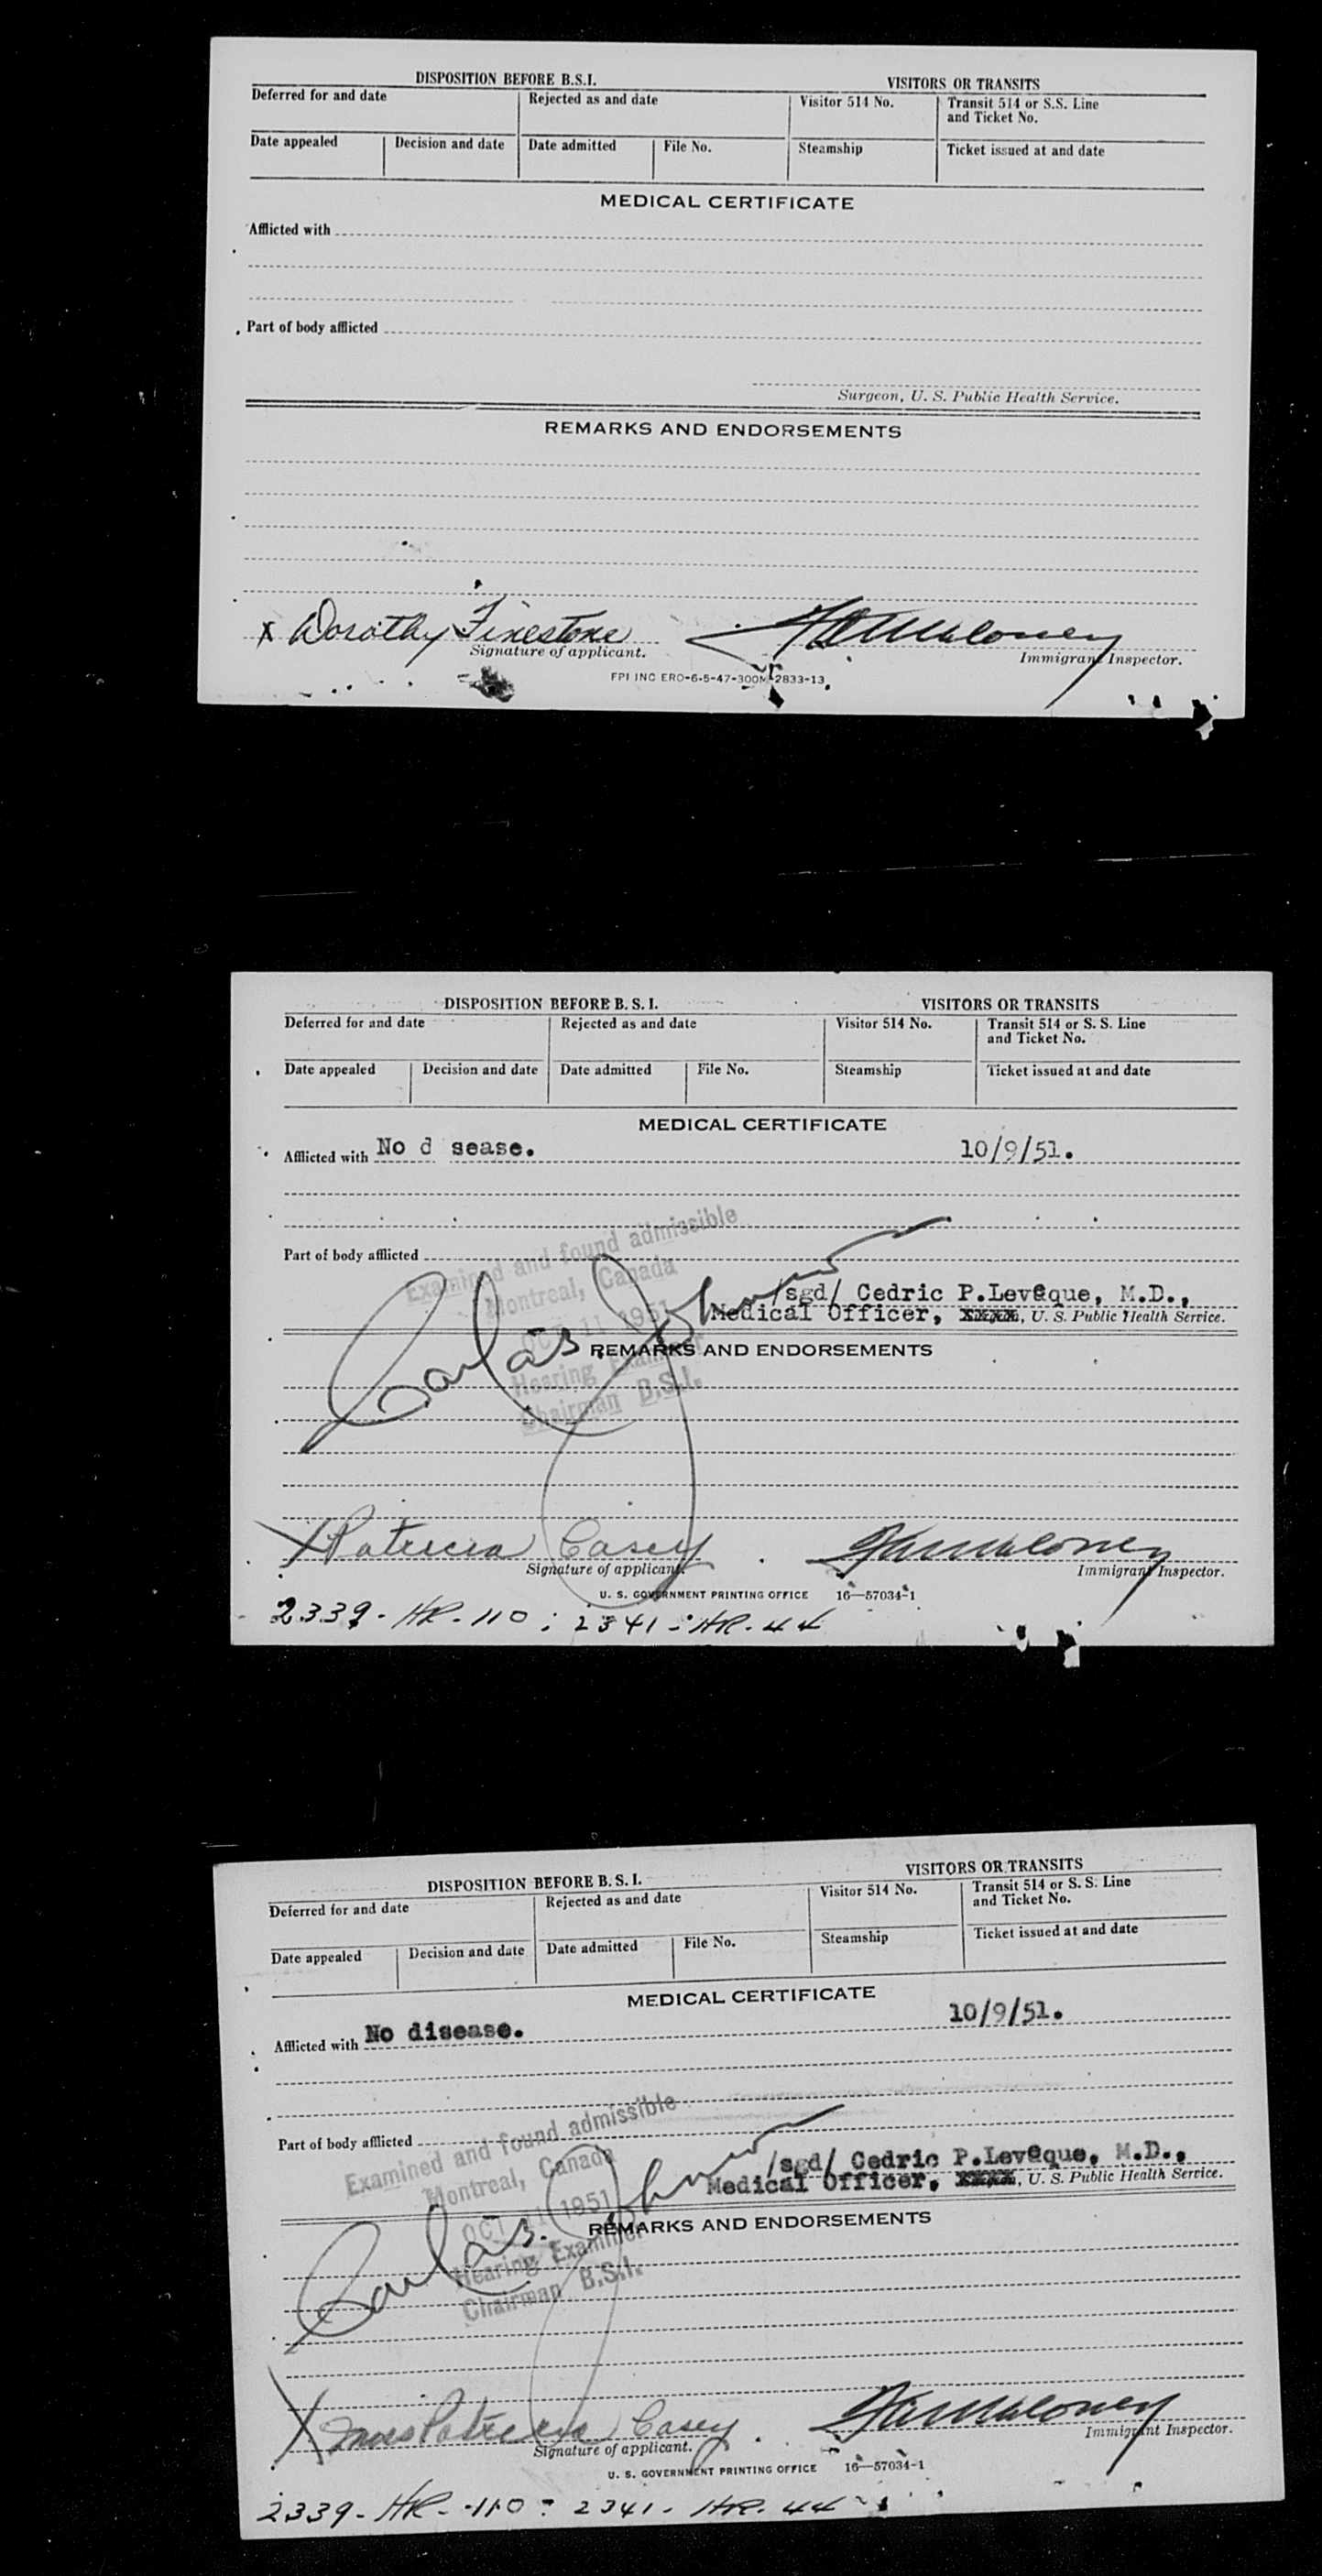 DISPOSITION BEFORE B.S.I. VISITORS OR TRANSITS
Deferred for and date Rejected as and date Visitor 514 No. Transit 514 or S.S. Line and Ticket No.
Date appealed Decision and date Date admitted File No. Steamship Ticket issued at and date
MEDICAL CERTIFICATE
Afflicted with
Part of body afflicted
Surgeon, U. S. Public Health Service.
REMARKS AND ENDORSEMENTS
x Dorothy Finestone
Signature of applicant. Immigrant Inspector.
FPI INC ERO-6-5-47-300M-2833-13
DISPOSITION BEFORE B. S. I. VISITORS OR TRANSITS
Deferred for and date Rejected as and date Visitor 514 No. Transit 514 or S. S. Line and Ticket No.
Date appealed Decision and date Date admitted File No. Steamship Ticket issued at and date
MEDICAL CERTIFICATE
Afflicted with No d sease. 10/9/51.
Examined and found admissible
Part of body afflicted
Montreal, Canada
/sgd/ Cedric P.Leveque, M.D.,
OCT 11 1951
Medical Officer, xxxx, U. S. Public Health Service.
REMARKS AND ENDORSEMENTS
Hearing Examiner
Chairman B.S.I.
X Patricia Casey
Signature of applicant. Immigrant Inspector.
U. S. GOVERNMENT PRINTING OFFICE 16—57034-1
2339-HR-110: 2341-HR-44
DISPOSITION BEFORE B. S. I. VISITORS OR TRANSITS
Deferred for and date Rejected as and date Visitor 514 No. Transit 514 or S. S. Line and Ticket No.
Date appealed Decision and date Date admitted File No. Steamship Ticket issued at and date
MEDICAL CERTIFICATE
Afflicted with No disease. 10/9/51.
Examined and found admissible
Part of body afflicted
Montreal, Canada
/sgd/ Cedric P.Leveque, M.D.,
Medical Officer, xxxx, U. S. Public Health Service.
OCT 11 1951
REMARKS AND ENDORSEMENTS
Hearing Examiner
Chairman B.S.I.
X Patricia Casey
Signature of applicant. Immigrant Inspector.
U. S. GOVERNMENT PRINTING OFFICE 16—57034-1
2339-HR-110: 2341-HR-44